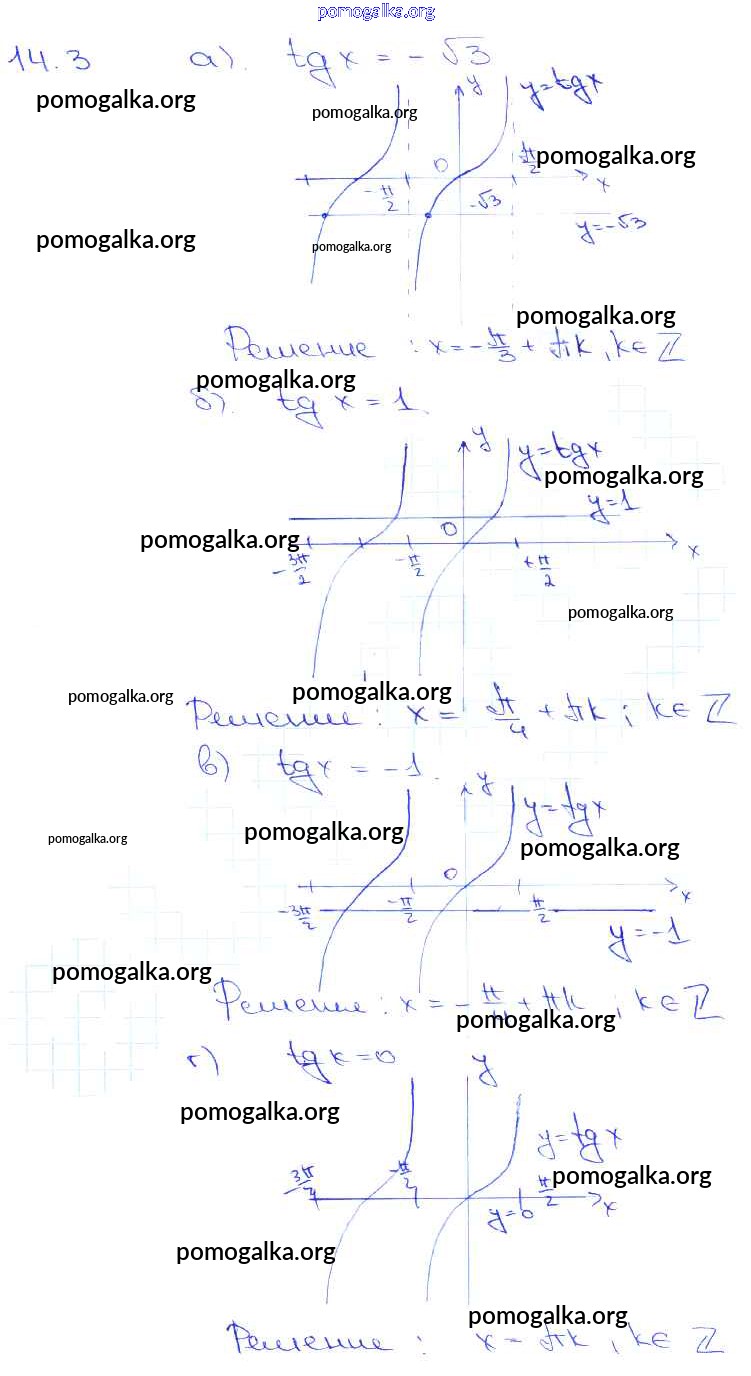 pomogalka.org
14.3 а). tg x = - √3
pomogalka.org
pomogalka.org
y y=tgx
0 π/2 pomogalka.org
-π/2 -√3 x
pomogalka.org
pomogalka.org
y=-√3
pomogalka.org
Решение : x=-π/3 + πk, k∈ℤ
pomogalka.org
б). tg x = 1
y y=tgx
pomogalka.org
y=1
pomogalka.org 0 x
-3π/2 -π/2 +π/2
pomogalka.org
pomogalka.org pomogalka.org
Решение : x = π/4 + πk ; k∈ ℤ
в) tgx = -1.
y y=tgx
pomogalka.org pomogalka.org pomogalka.org
0 x
-3π/2 -π/2 π/2
y=-1
pomogalka.org
Решение : x = -π/4 + πk ; k∈ℤ
pomogalka.org
г) tgx=0 y
pomogalka.org
y=tgx
-3π/2 -π/2 π/2 pomogalka.org
y=0 x
pomogalka.org
pomogalka.org
Решение : x = πk, k∈ ℤ